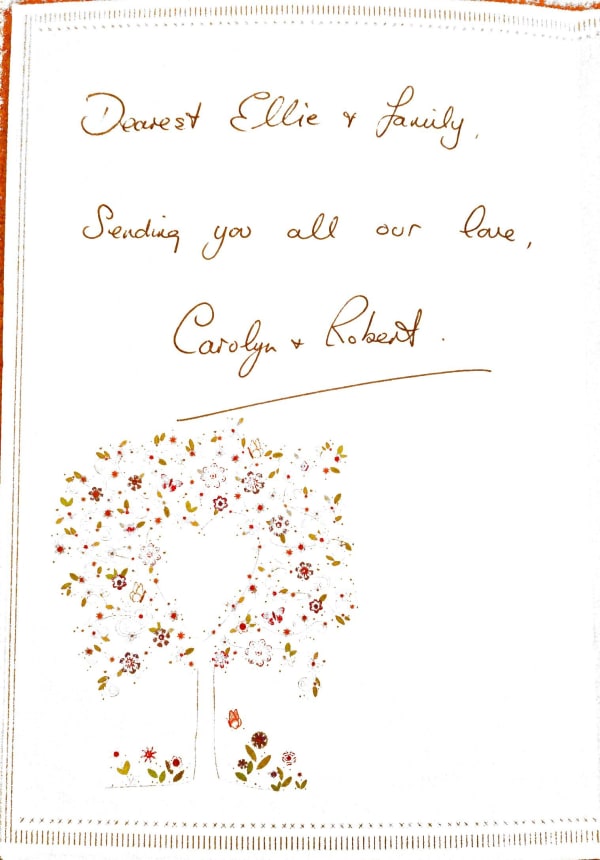 Dearest Ellie + family,
Sending you all our love,
Carolyn + Robert.